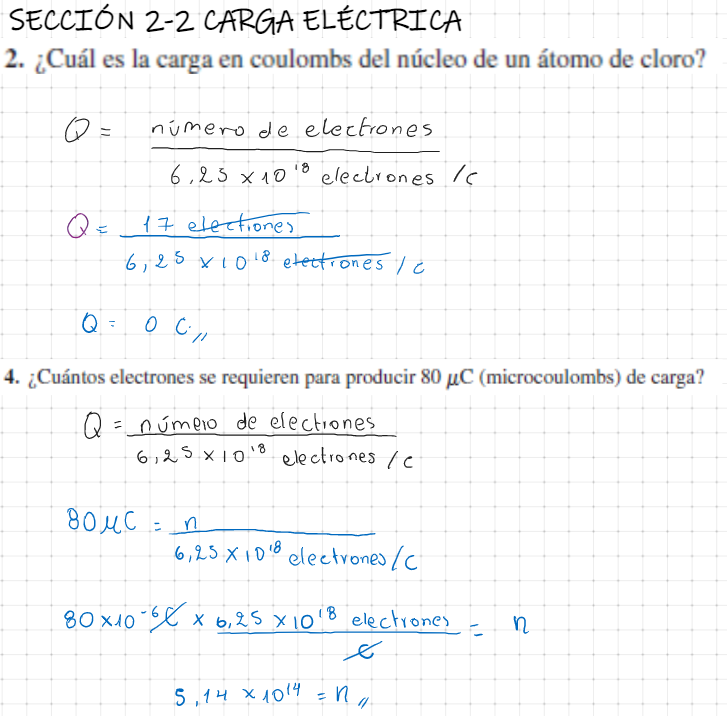 SECCIÓN 2-2 CARGA ELÉCTRICA
2. ¿Cuál es la carga en coulombs del núcleo de un átomo de cloro?
Q = número de electrones
6,25 x 10^18 electrones /c
Q = 17 electrones
6,25 x 10^18 electrones / c
Q = 0 C //
4. ¿Cuántos electrones se requieren para producir 80 μC (microcoulombs) de carga?
Q = número de electrones
6,25 x 10^18 electrones /c
80 μC = n
6,25 x 10^18 electrones/c
80 x 10^-6 C x 6,25 x 10^18 electrones = n
C
5,14 x 10^14 = n //